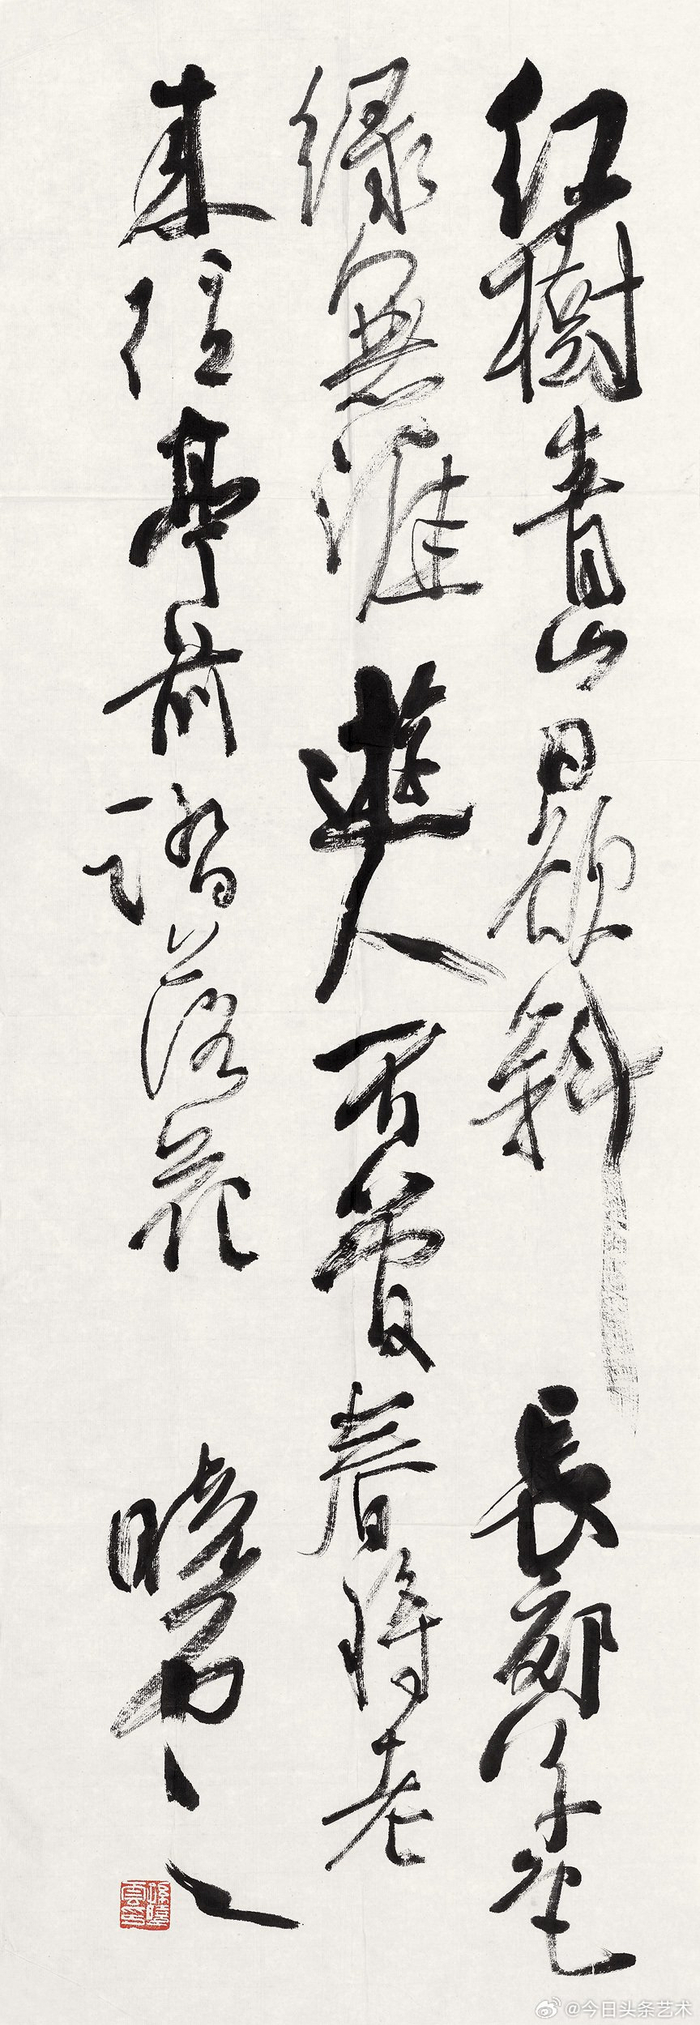 紅樹青山日欲斜長郊草色
綠無涯遊人不管春將老
来往亭前踏落花
曉雲
孫曉雲印
@今日头条艺术